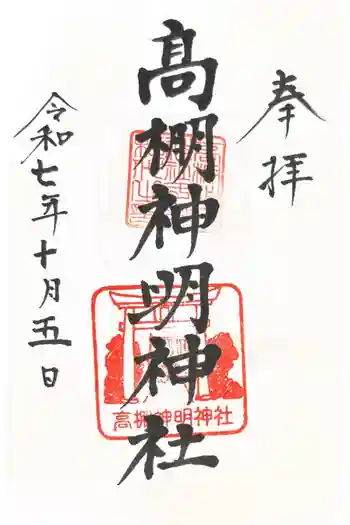 奉拝
髙棚神明神社
高棚神明神社
令和七年十月五日